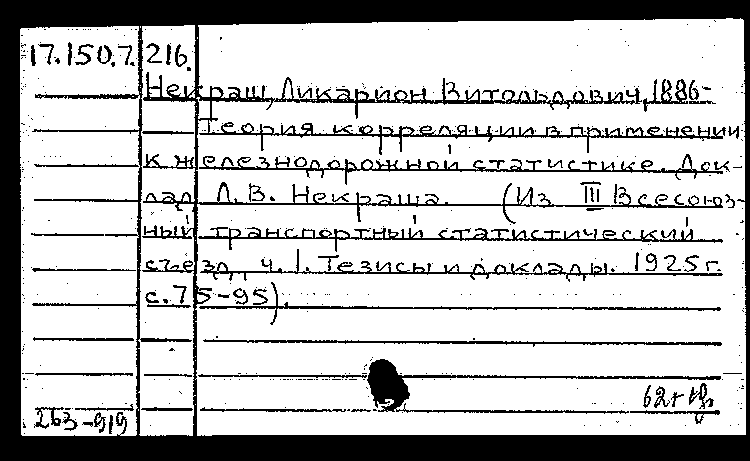 17.150.7. 216.
Некраш, Ликарион Витольдович, 1886-
Теория корреляции в применении
к железнодорожной статистике. Док-
лад Л. В. Некраша. (Из III Всесоюз-
ный транспортный статистический
съезд, ч. 1. Тезисы и доклады. 1925 г.
с. 75-95).
263-919